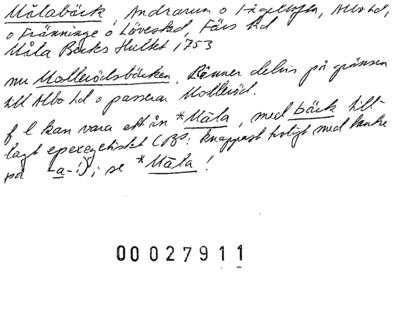 Målabäck, Andrarum o Fågeltofta, Albo hd,
o Tranninge o Lövestad, Färs hd
Måla Bäcks Hultet 1753
nu Möllerödsbäcken. Rinner delvis på gränsen
till Albo hd o passerar Mölleröd.
f l kan vara ett ån *Måla, med bäck till-
lagt epexegetiskt (OBS. knappast troligt med tanke
på -a-!); se *Måla!
00027911